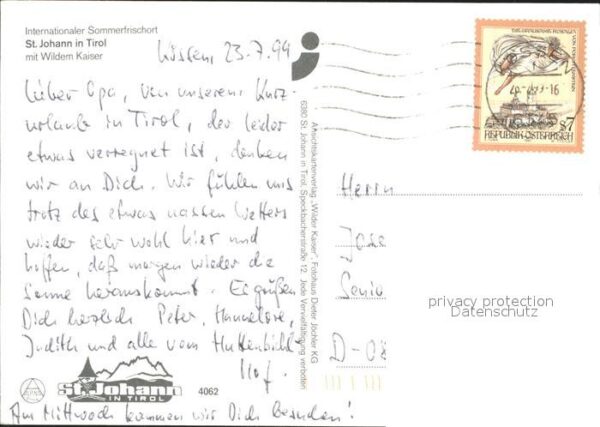 Internationaler Sommerfrischort
St. Johann in Tirol
mit Wildem Kaiser
Kössen, 23.7.99
Lieber Opa, von unserem Kurz-
urlaub in Tirol, der leider
etwas verregnet ist, denken
wir an Dich. Wir fühlen uns
trotz des etwas nassen Wetters
wieder sehr wohl hier und
hoffen, daß morgen wieder die
Sonne herauskommt. Es grüßen
Dich herzlich Peter, Hannelore,
Judith und alle vom
Hof.
Am Mittwoch kommen wir Dich besuchen!
St. Johann
IN TIROL
4062
Ansichtskartenverlag „Wilder Kaiser“, Fotohaus Dieter Jöchler KG
6380 St. Johann in Tirol, Speckbacherstraße 12. Jede Vervielfältigung verboten
S7
REPUBLIK ÖSTERREICH
Herrn
Jose
Senio
D-08
privacy protection
Datenschutz